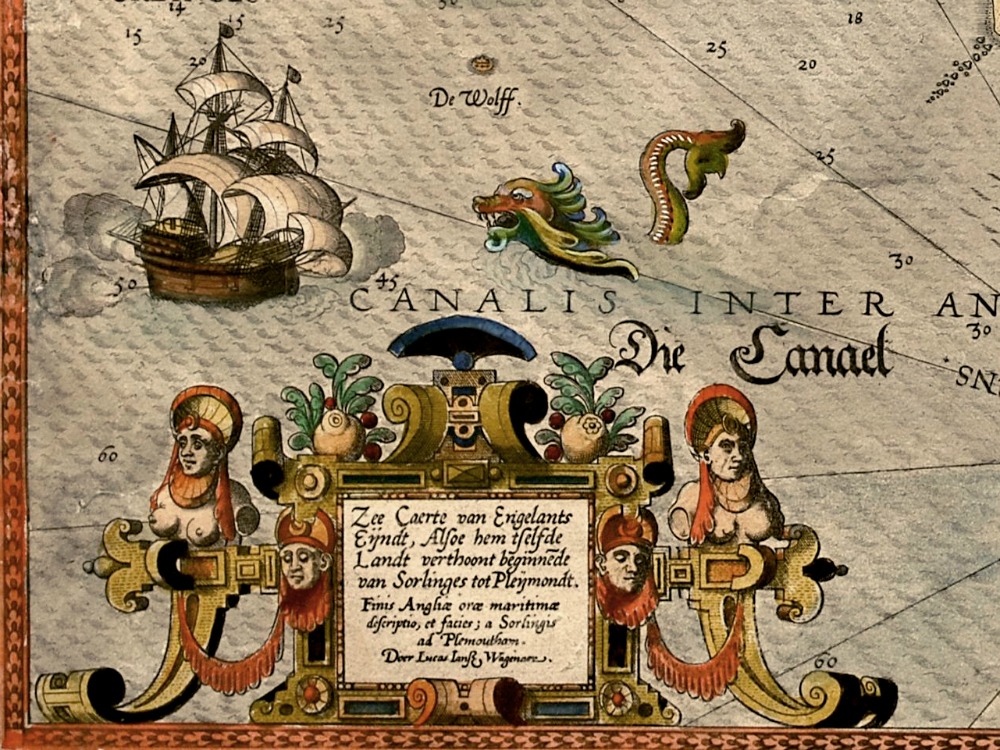 14
15
15
25
20
18
25
20
De Wolff.
25
30
50
45
CANALIS INTER AN
30
Die Canael
60
Zee Caerte van Engelants
Eyndt, Alsoe hem tselfde
Landt verthoont beginnēde
van Sorlinges tot Pleijmondt.
Finis Angliæ oræ maritimæ
descriptio, et facies; a Sorlingis
ad Plemoutham.
Doer Lucas Ianß Wagenaer.
60